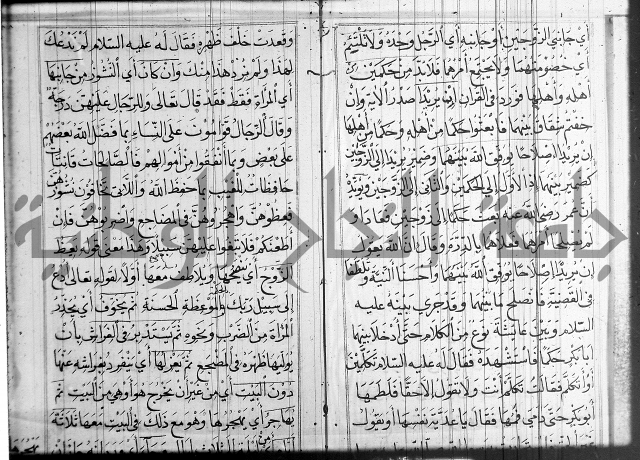 أي جانبي الزوجين أو جانبه أي الرجل وحده ولا تلتئم
أي خصومتهما ولا يجتمع أمرهما فلابد من حكمين من
أهله وأهلها فورد في القرآن إن يريدا صدر الآية وإن
خفتم شقاق بينهما فابعثوا حكما من أهله وحكما من أهلها
إن يريدا إصلاحا يوفق الله بينهما وضمير يريدا إلى الزوجين
كضمير بينهما إذ الأول إلى الحكمين والثاني إلى الزوجين ويؤيد
أن عمر رضي الله عنه بعث حكما إلى زوجين فعادا و
لم يصلحا أمرهما فعلاهما بالدرة وقال إن الله يقول
إن يريدا إصلاحا يوفق الله بينهما وأحسنا النية وتلطفا
في القضية فانصلح ما بينهما وقد جرى بينه عليه
السلام وبين عائشة نوع من الكلام حتى أدخلا بينهما
أبا بكر حكما فاستشهده فقال له عليه السلام تكلمين
وأتكلم فقالت تكلم أنت ولا تقول إلا حقا فلطمها
أبو بكر حتى دمي فمها فقال يا عدية نفسها أو يقول
وقعدت خلف ظهره فقال له عليه السلام لم ندعك
لهذا ولم نرد هذا منك وإن كان أي النشوز من جانبها
أي المرأة فقط فقد قال تعالى وللرجال عليهن درجة
وقال الرجال قوامون على النساء بما فضل الله بعضهم
على بعض وبما أنفقوا من أموالهم فالصالحات قانتات
حافظات للغيب بما حفظ الله واللاتي تخافون نشوزهن
فعظوهن واهجروهن في المضاجع واضربوهن فإن
أطعنكم فلا تبغوا عليهن سبيلا وهذا معنى قوله يعظ
الزوج أي ينصحها ويلاطف معها أولا لقوله تعالى ادع
إلى سبيل ربك بالموعظة الحسنة ثم يخوف أي يحذر
المرأة من الضرب ونحوه ثم يستدبر في الفراش بأن
يوليها ظهره في المضجع ثم يعزلها أي ينفرد بفراشه عنها
دون البيت أي من غير أن يخرج هو أو هي من البيت ثم
يهاجر أي يهجرها وهو مع ذلك في البيت معها ثلاثة
جامعة الملك